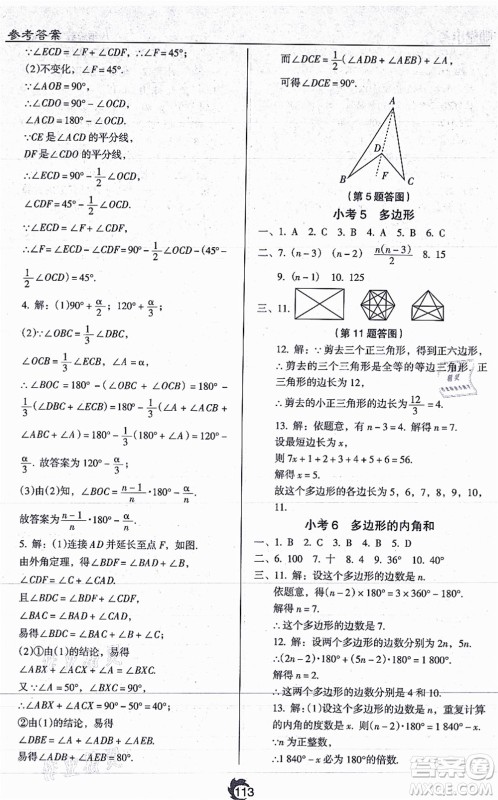 参考答案
∵∠ECD=∠F+∠CDF,∴∠F=45°;
(2)不变化,∠F=45°.
∵∠AOB=90°,
∴∠CDO=90°-∠OCD,
∠ACD=180°-∠OCD.
∵CE是∠ACD的平分线,
DF是∠CDO的平分线,
∴∠ECD=90°-1/2∠OCD,
∠CDF=45°-1/2∠OCD.
∵∠ECD=∠F+∠CDF,
∴∠F=∠ECD-∠CDF=90°-1/2∠OCD-(45°-
1/2∠OCD)=45°.
4. 解:(1)90°+α/2; 120°+α/3;
(2)∵∠OBC=1/3∠DBC,
∠OCB=1/3∠ECB,∠A=α,
∴∠BOC=180°-1/3(∠DBC+∠ECB)=180°-
1/3(∠DBC+∠ECB)=180°-1/3(∠A+∠ACB+
∠ABC+∠A)=180°-1/3(180°+α)=120°-
α/3. 故答案为120°-α/3;
(3)由(2)知,∠BOC=(n-1)/n·180°-α/n.
故答案为(n-1)/n·180°-α/n.
5. 解:(1)连接AD并延长至点F,如图.
由外角定理,得∠BDF=∠BAD+∠B,
∠CDF=∠C+∠CAD.
且∠BDC=∠BDF+∠CDF,
∠BAC=∠BAD+∠CAD,
易得∠BDC=∠BAC+∠B+∠C;
(2)①由(1)的结论,易得
∠ABX+∠ACX+∠A=∠BXC.
又∵∠A=50°,∠BXC=90°,
∴∠ABX+∠ACX=90°-50°=40°;
②由(1)的结论,易得
∠DBE=∠A+∠ADB+∠AEB,
易得∠ADB+∠AEB=80°.
而∠DCE=1/2(∠ADB+∠AEB)+∠A,
可得∠DCE=90°.
A
D
F
B
C
(第5题答图)
小考5 多边形
一、1. A 2. C 3. B 4. A 5. D 6. C
二、7. (n-3) (n-2) n(n-3)/2 8. 15
9. (n-1) 10. 125
三、11.
(第11题答图)
12. 解:∵剪去三个正三角形,得到正六边形,
∴剪去的三个正三角形是全等的等边三角形,
∵正三角形的边长为12,
∴剪去的小正三角形的边长为12/3=4.
13. 解:依题意,有n-3=4,解得n=7.
设最短边长为x,
则7x+1+2+3+4+5+6=56,
解得x=5.
故这个多边形的各边长为5,6,7,8,9,10,11.
小考6 多边形的内角和
一、1. B 2. D 3. B 4. D 5. B
二、6. 100 7. 十 8. 4 9. 36° 10. 40°
三、11. 解:设这个多边形的边数是n.
依题意,得(n-2)×180°=3×360°-180°,
解得n=7.
∴这个多边形的边数是7.
12. 解:设这两个多边形的边数分别为2n,5n.
∴(2n-2)·180°+(5n-2)·180°=1 800°,
解得n=2.
∴这两个多边形的边数分别是4和10.
13. 解:设这个多边形的边数是n,重复计算的
的内角的度数是x,则(n-2)·180°=1 840°-x.
∵n为正整数,
∴1 840°-x必为180°的倍数.
113